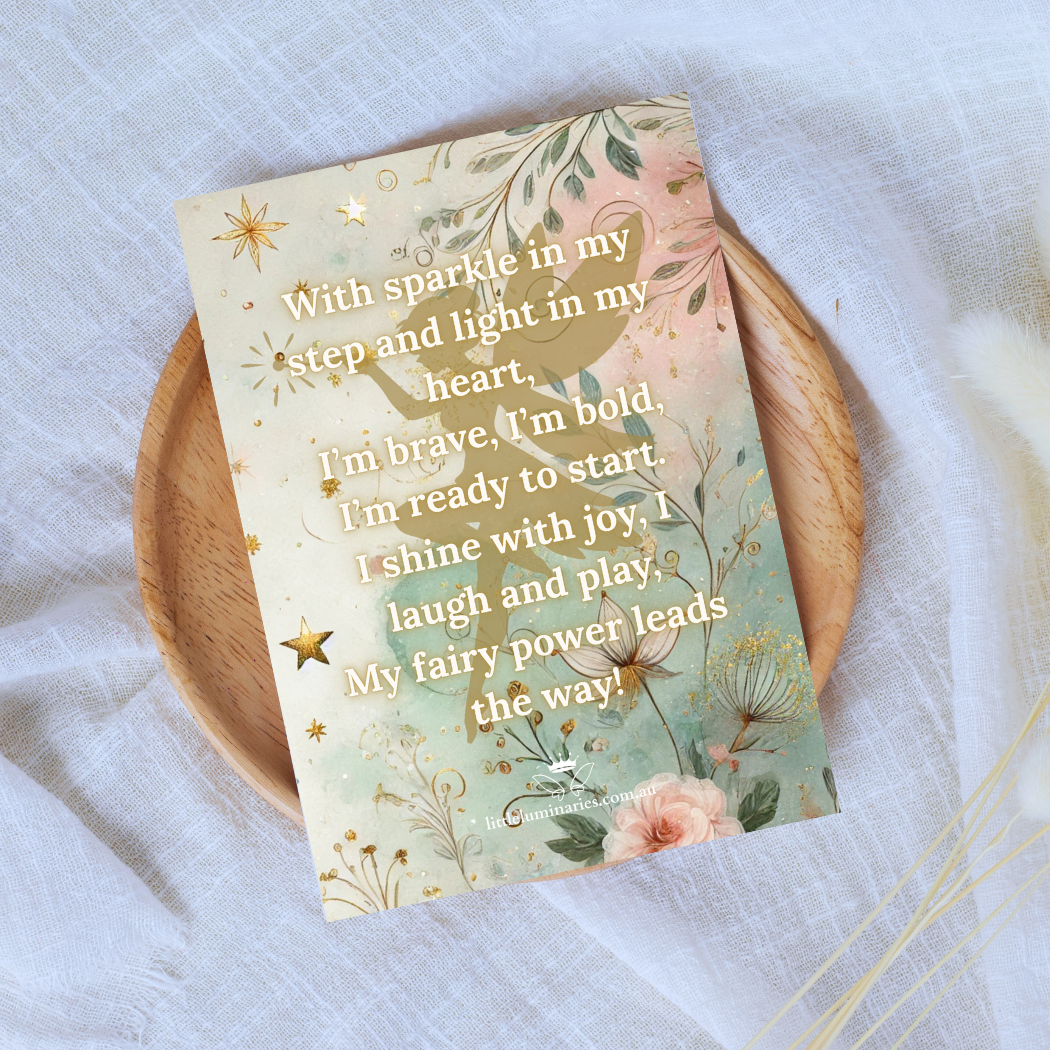 With sparkle in my
step and light in my
heart,
I'm brave, I'm bold,
I'm ready to start.
I shine with joy, I
laugh and play,
My fairy power leads
the way!
littleluminaries.com.au